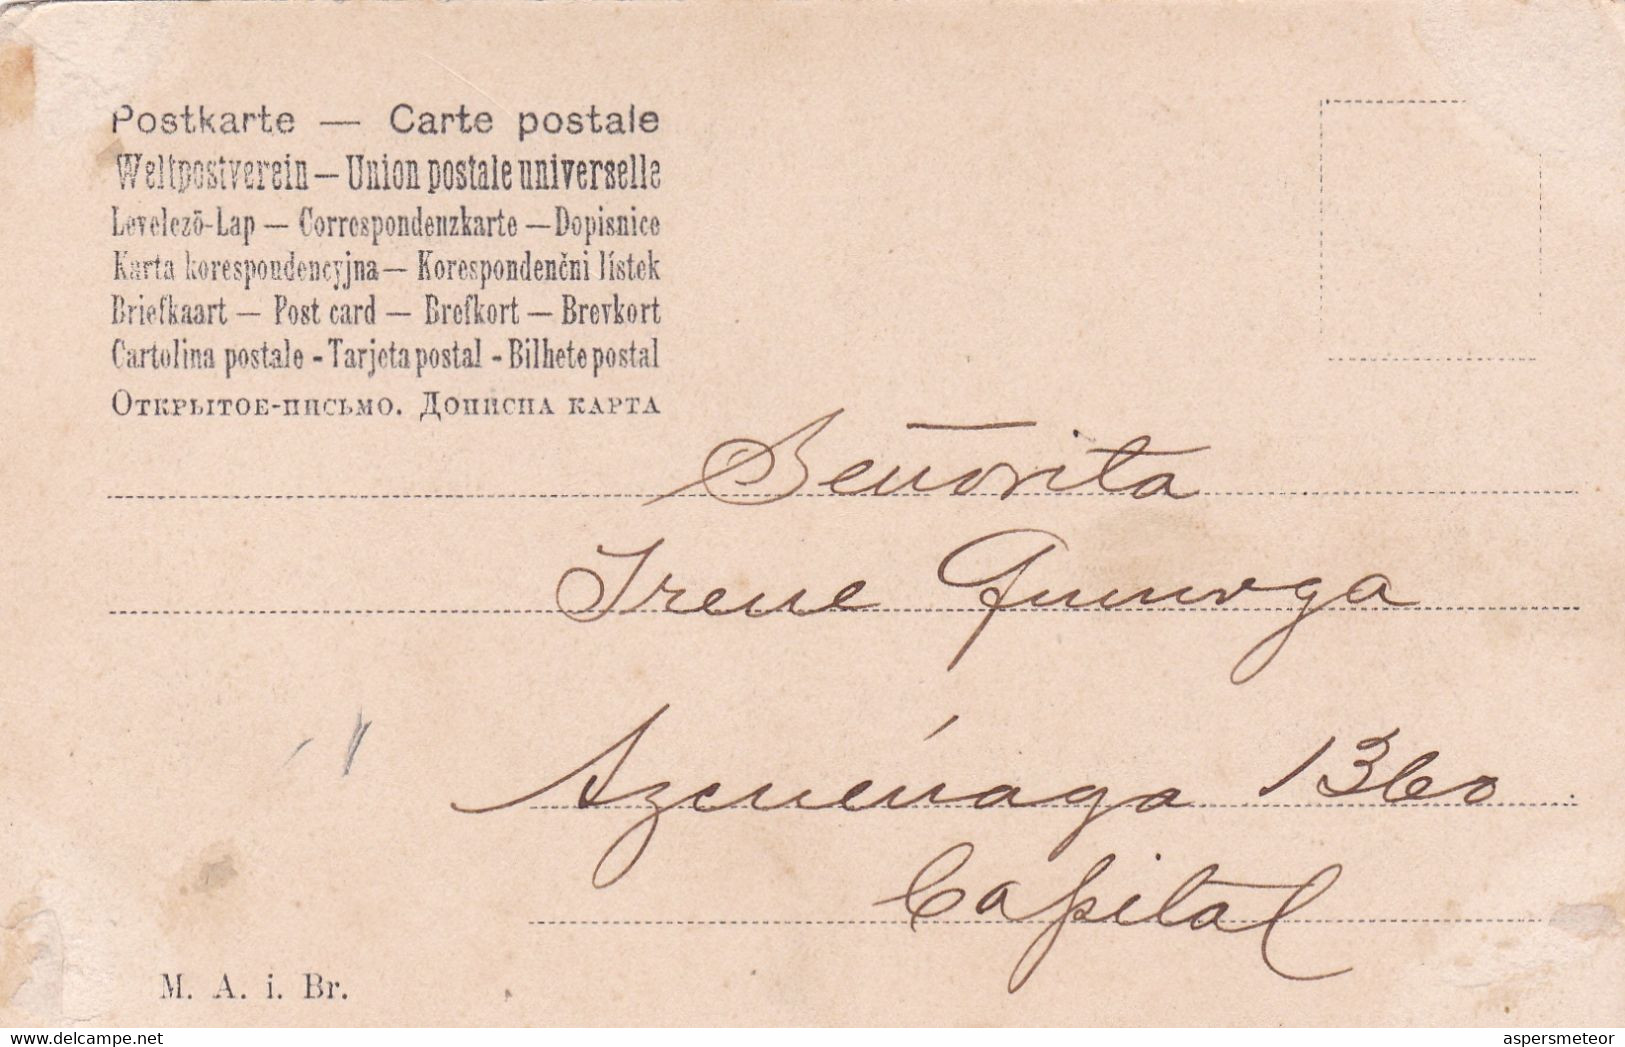 Postkarte — Carte postale
Weltpostverein — Union postale universelle
Levelezö-Lap — Correspondenzkarte — Dopisnice
Karta korespondencyjna — Korespondenční lístek
Briefkaart — Post card — Brefkort — Brevkort
Cartolina postale - Tarjeta postal - Bilhete postal
Открытое-письмо. Дописна карта
Señorita
Irene
Azcuénaga 1360
Capital
M. A. i. Br.
www.delcampe.net
aspersmeteor